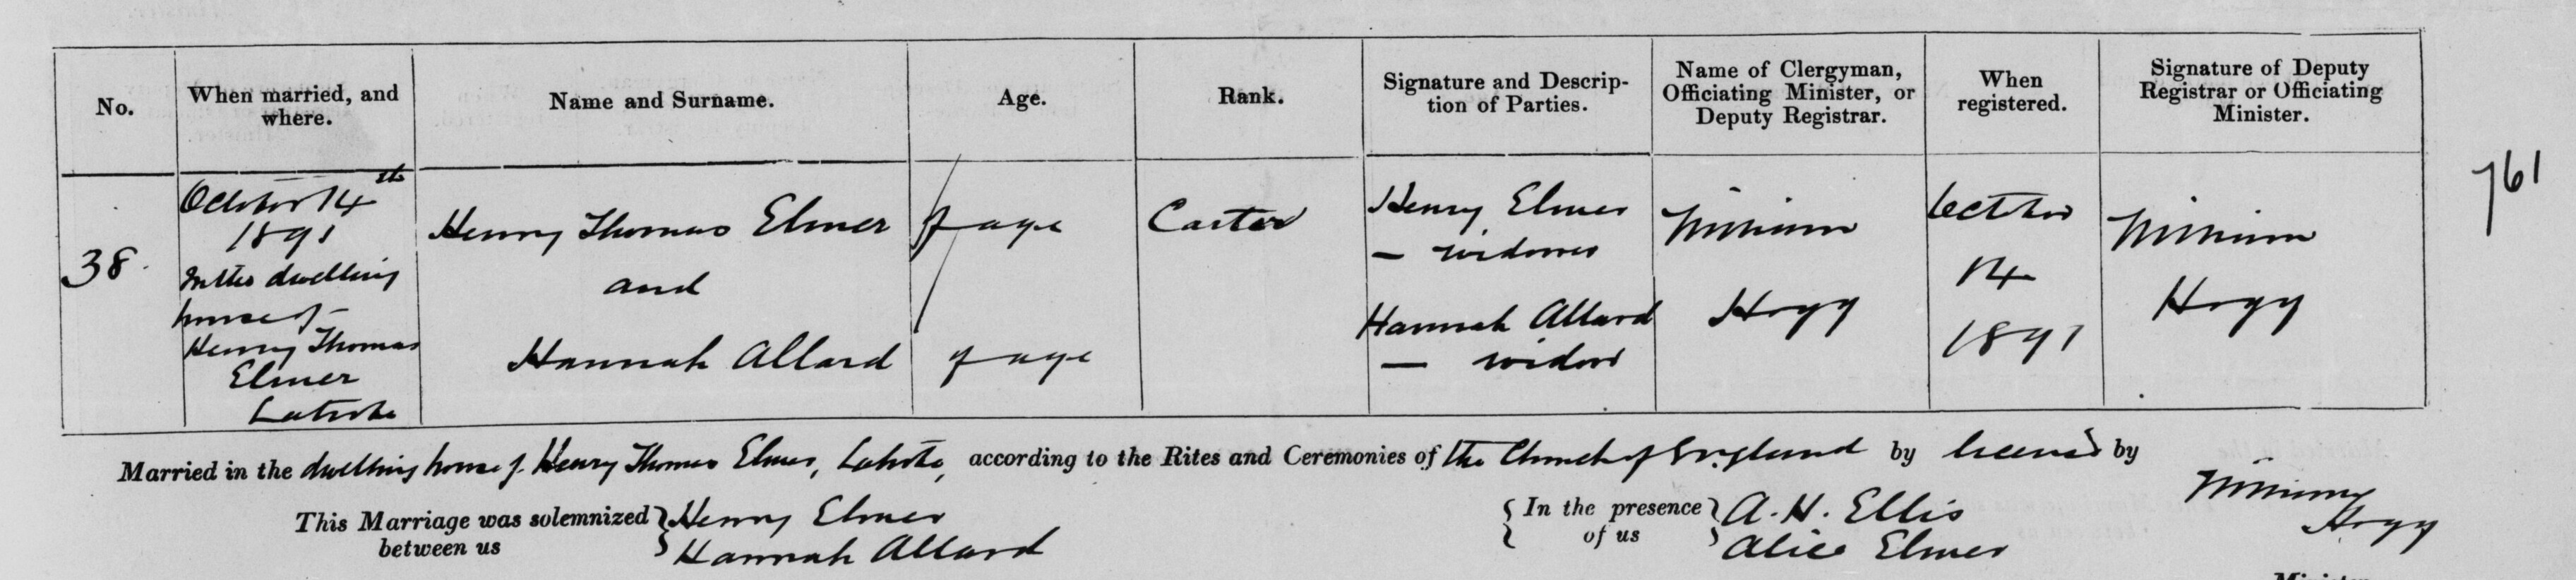 No.
When married, and
where.
Name and Surname.
Age.
Rank.
Signature and Descrip-
tion of Parties.
Name of Clergyman,
Officiating Minister, or
Deputy Registrar.
When
registered.
Signature of Deputy
Registrar or Officiating
Minister.
761
38.
October 14th
1891
In the dwelling
house of
Henry Thomas
Elmer
Latrobe
Henry Thomas Elmer
and
Hannah Allard
f age
f age
Carter
Henry Elmer
— widower
Hannah Allard
— widow
Ninian
Hogg
October
14
1891
Ninian
Hogg
Married in the dwelling house of Henry Thomas Elmer, Latrobe, according to the Rites and Ceremonies of the Church of England by license by
Ninian
Hogg
This Marriage was solemnized
between us
Henry Elmer
Hannah Allard
In the presence
of us
A. H. Ellis
Alice Elmer
Minister